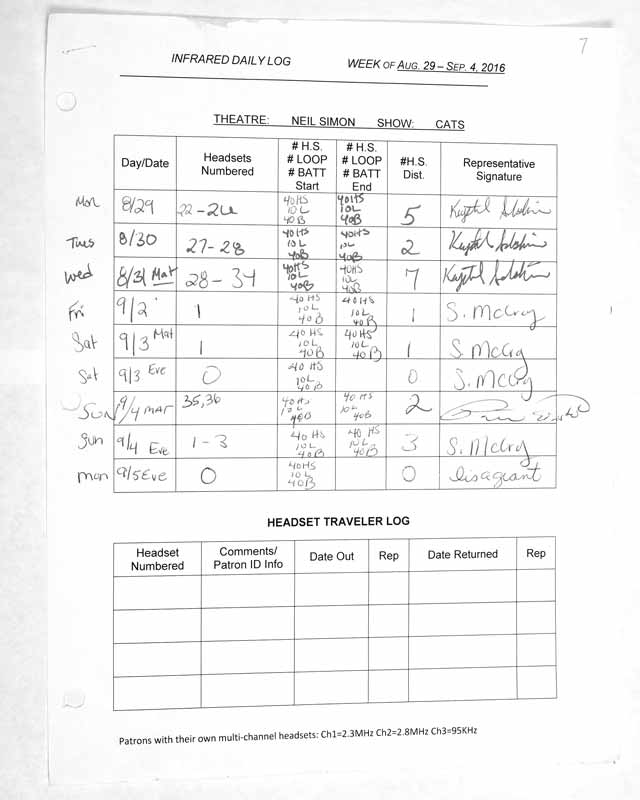 7
INFRARED DAILY LOG WEEK OF AUG. 29 – SEP. 4, 2016
THEATRE: NEIL SIMON SHOW: CATS
Day/Date
Headsets
Numbered
# H.S.
# LOOP
# BATT
Start
# H.S.
# LOOP
# BATT
End
#H.S.
Dist.
Representative
Signature
Mon 8/29 22-26 40HS 10L 40B 40HS 10L 40B 5
Tues 8/30 27-28 40HS 10L 40B 40HS 10L 40B 2
Wed 8/31 Mat 28-34 40HS 10L 40B 40HS 10L 40B 7
Fri 9/2 1 40HS 10L 40B 40HS 10L 40B 1 S. McCroy
Sat 9/3 Mat 1 40HS 10L 40B 40HS 10L 40B 1 S. McCroy
Sat 9/3 Eve 0 40HS 10L 40B 0 S. McCroy
SUN 9/4 MAT 35,36 40HS 10L 40B 40HS 10L 40B 2
Sun 9/4 Eve 1-3 40HS 10L 40B 40HS 10L 40B 3 S. McCroy
Mon 9/5 Eve 0 40HS 10L 40B 0
HEADSET TRAVELER LOG
Headset
Numbered
Comments/
Patron ID Info
Date Out
Rep
Date Returned
Rep
Patrons with their own multi-channel headsets: Ch1=2.3MHz Ch2=2.8MHz Ch3=95KHz